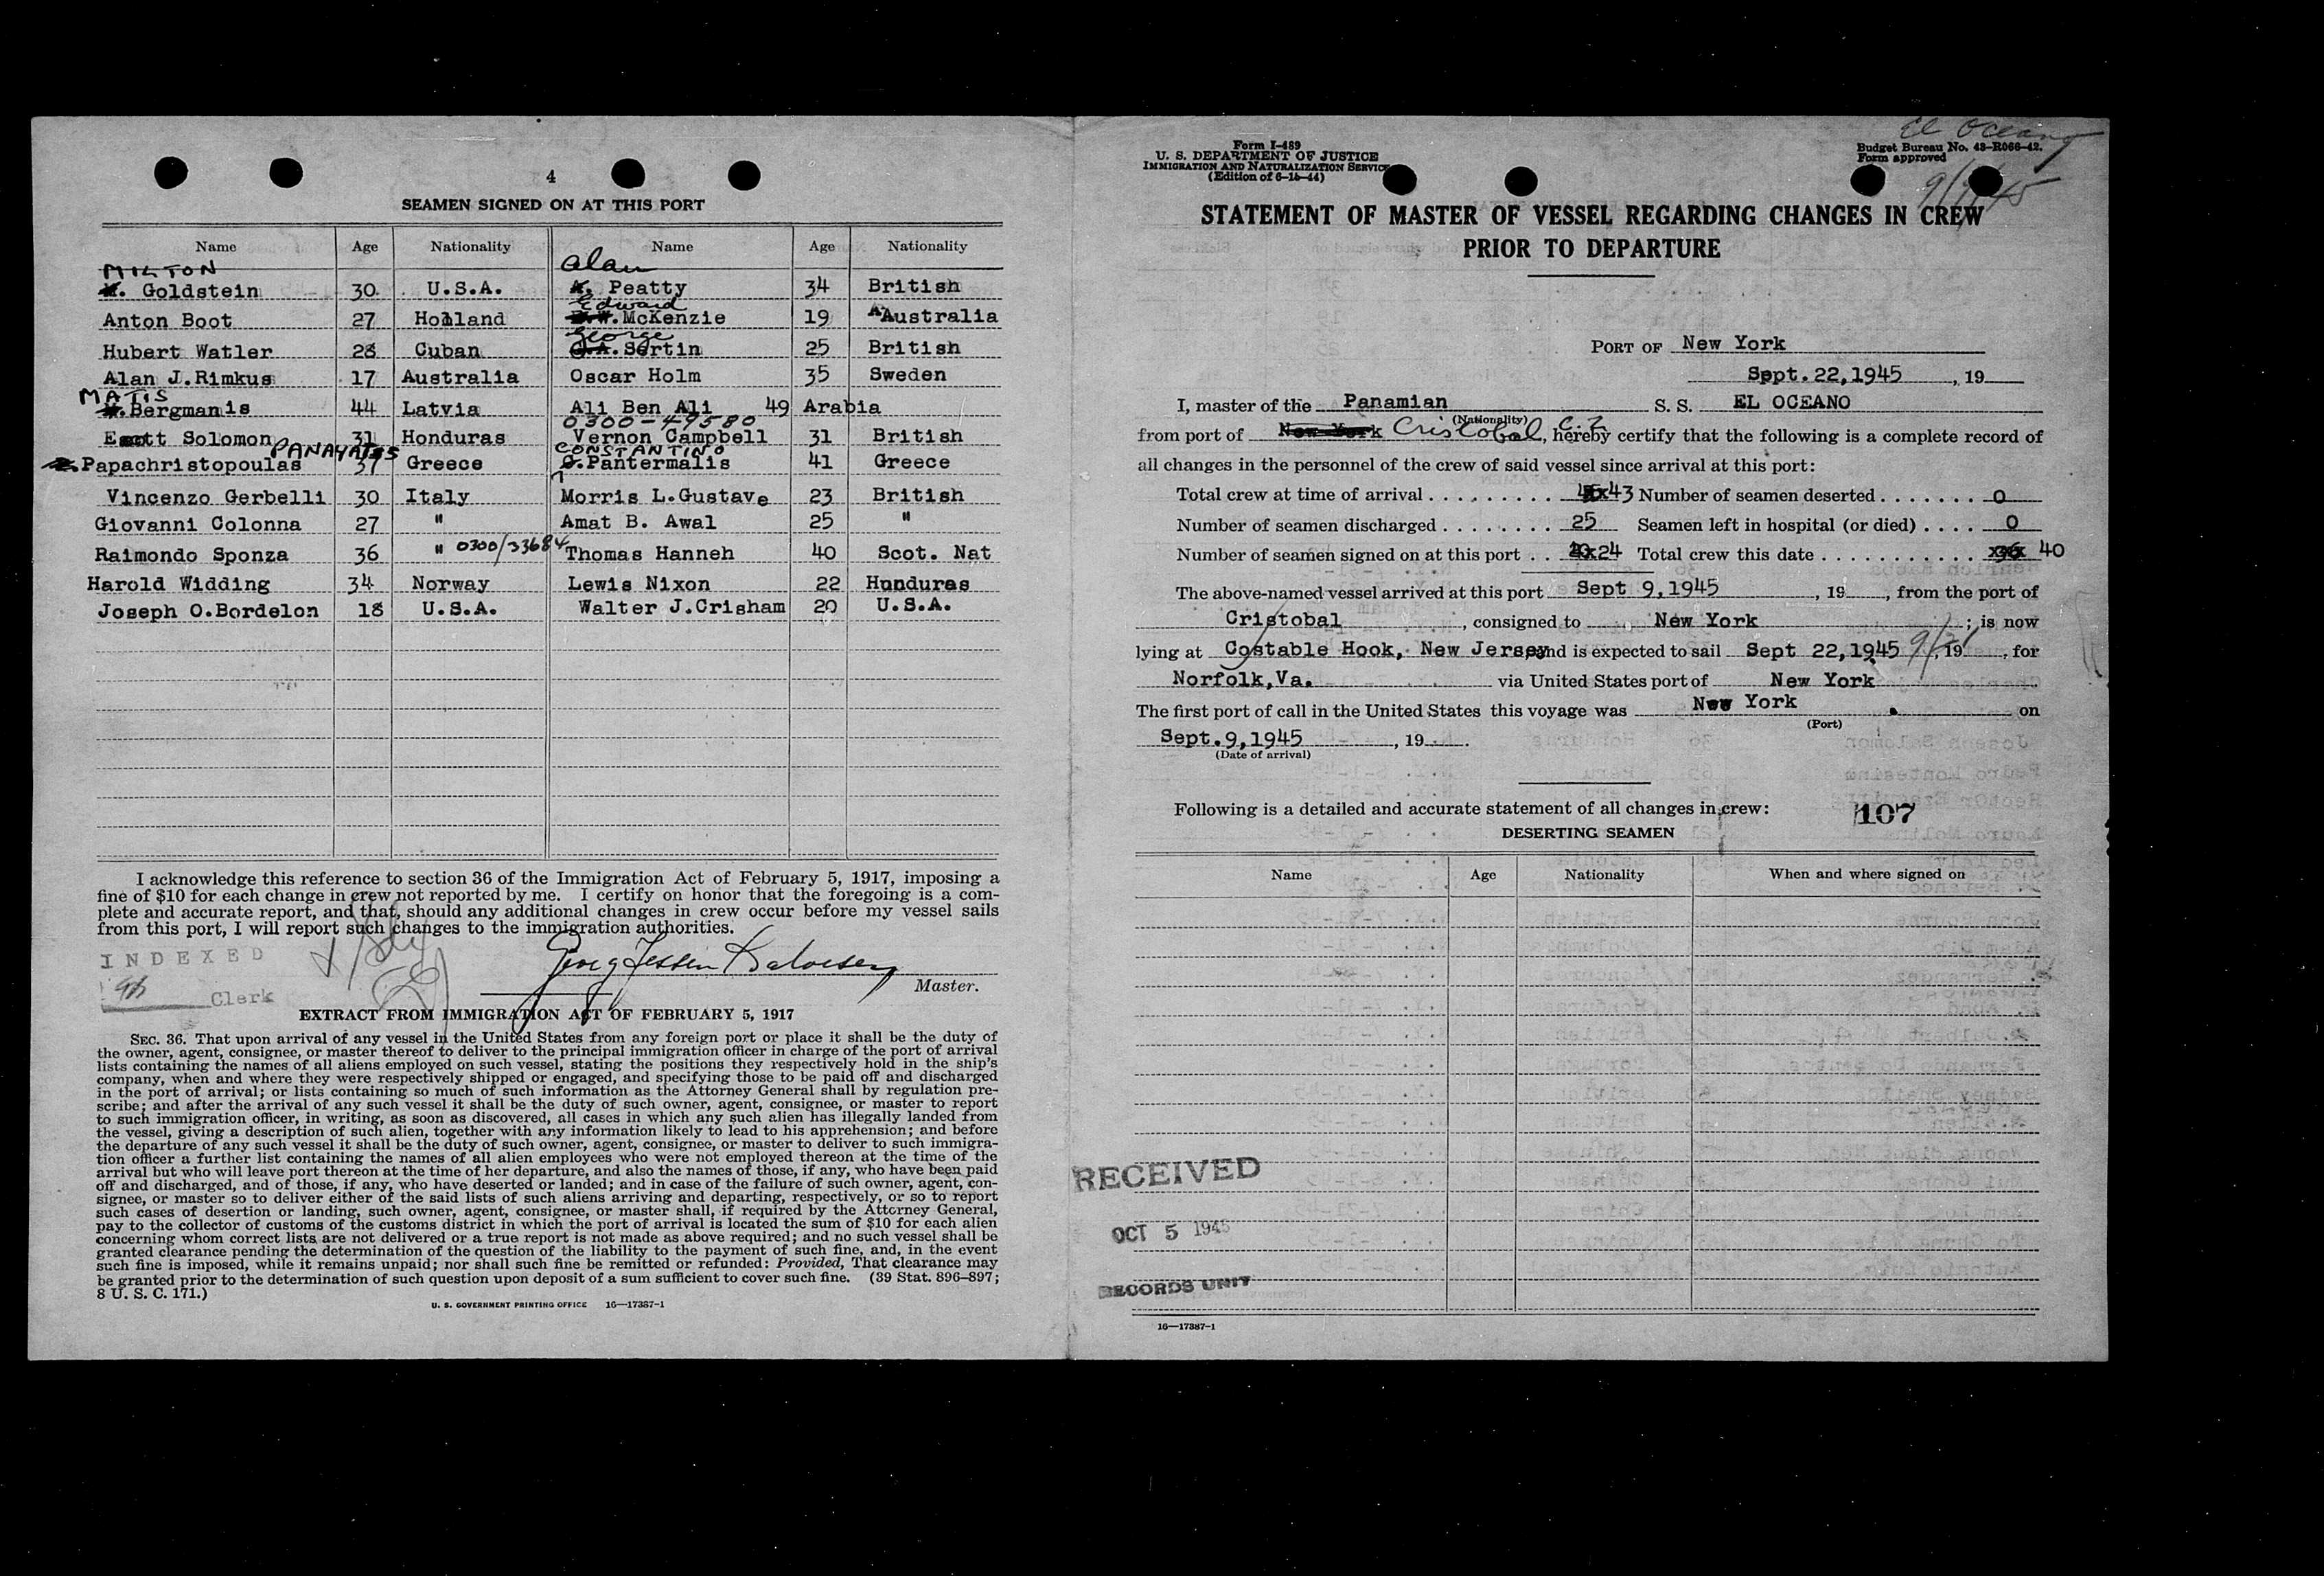 4
SEAMEN SIGNED ON AT THIS PORT
Name Age Nationality Name Age Nationality
MILTON alan
Goldstein 30 U.S.A. Peatty 34 British
Edward
Anton Boot 27 Holland McKenzie 19 Australia
George
Hubert Watler 28 Cuban Sertin 25 British
Alan J.Rimkus 17 Australia Oscar Holm 35 Sweden
MATIS
Bergmanis 44 Latvia Ali Ben Ali 49 Arabia
0300-49580
Solomon 31 Honduras Vernon Campbell 31 British
CONSTANTINO
Papachristopoulas 37 Greece Pantermalis 41 Greece
Vincenzo Gerbelli 30 Italy Morris L.Gustave 23 British
Giovanni Colonna 27 " Amat B. Awal 25 "
Raimondo Sponza 36 " 0300/33684 Thomas Hanneh 40 Scot. Nat
Harold Widding 34 Norway Lewis Nixon 22 Hunduras
Joseph O.Bordelon 18 U.S.A. Walter J.Crisham 20 U.S.A.
I acknowledge this reference to section 36 of the Immigration Act of February 5, 1917, imposing a
fine of $10 for each change in crew not reported by me. I certify on honor that the foregoing is a com-
plete and accurate report, and that, should any additional changes in crew occur before my vessel sails
from this port, I will report such changes to the immigration authorities.
INDEXED
Clerk
Master.
EXTRACT FROM IMMIGRATION ACT OF FEBRUARY 5, 1917
SEC. 36. That upon arrival of any vessel in the United States from any foreign port or place it shall be the duty of
the owner, agent, consignee, or master thereof to deliver to the principal immigration officer in charge of the port of arrival
lists containing the names of all aliens employed on such vessel, stating the positions they respectively hold in the ship's
company, when and where they were respectively shipped or engaged, and specifying those to be paid off and discharged
in the port of arrival; or lists containing so much of such information as the Attorney General shall by regulation pre-
scribe; and after the arrival of any such vessel it shall be the duty of such owner, agent, consignee, or master to report
to such immigration officer, in writing, as soon as discovered, all cases in which any such alien has illegally landed from
the vessel, giving a description of such alien, together with any information likely to lead to his apprehension; and before
the departure of any such vessel it shall be the duty of such owner, agent, consignee, or master to deliver to such immigra-
tion officer a further list containing the names of all alien employees who were not employed thereon at the time of the
arrival but who will leave port thereon at the time of her departure, and also the names of those, if any, who have been paid
off and discharged, and of those, if any, who have deserted or landed; and in case of the failure of such owner, agent, con-
signee, or master so to deliver either of the said lists of such aliens arriving and departing, respectively, or so to report
such cases of desertion or landing, such owner, agent, consignee, or master shall, if required by the Attorney General,
pay to the collector of customs of the customs district in which the port of arrival is located the sum of $10 for each alien
concerning whom correct lists are not delivered or a true report is not made as above required; and no such vessel shall be
granted clearance pending the determination of the question of the liability to the payment of such fine, and, in the event
such fine is imposed, while it remains unpaid; nor shall such fine be remitted or refunded: Provided, That clearance may
be granted prior to the determination of such question upon deposit of a sum sufficient to cover such fine. (39 Stat. 896-897;
8 U. S. C. 171.)
U. S. GOVERNMENT PRINTING OFFICE 16—17387-1
El Oceano
Form I-489
U. S. DEPARTMENT OF JUSTICE
IMMIGRATION AND NATURALIZATION SERVICE
(Edition of 6-15-44)
Budget Bureau No. 43-R066-42.
Form approved
STATEMENT OF MASTER OF VESSEL REGARDING CHANGES IN CREW
PRIOR TO DEPARTURE
PORT OF New York
Sept.22,1945, 19
I, master of the Panamian S. S. EL OCEANO
(Nationality)
from port of New York Cristobal, C.Z, hereby certify that the following is a complete record of
all changes in the personnel of the crew of said vessel since arrival at this port:
Total crew at time of arrival 43 Number of seamen deserted 0
Number of seamen discharged 25 Seamen left in hospital (or died) 0
Number of seamen signed on at this port 24 Total crew this date 40
The above-named vessel arrived at this port Sept 9,1945, 19, from the port of
Cristobal, consigned to New York; is now
lying at Costable Hook, New Jersey and is expected to sail Sept 22,1945, 19, for
Norfolk,Va. via United States port of New York
The first port of call in the United States this voyage was New York on
(Port)
Sept.9,1945, 19.
(Date of arrival)
Following is a detailed and accurate statement of all changes in crew:
107
DESERTING SEAMEN
Name Age Nationality When and where signed on
RECEIVED
OCT 5 1945
RECORDS UNIT
16—17387-1